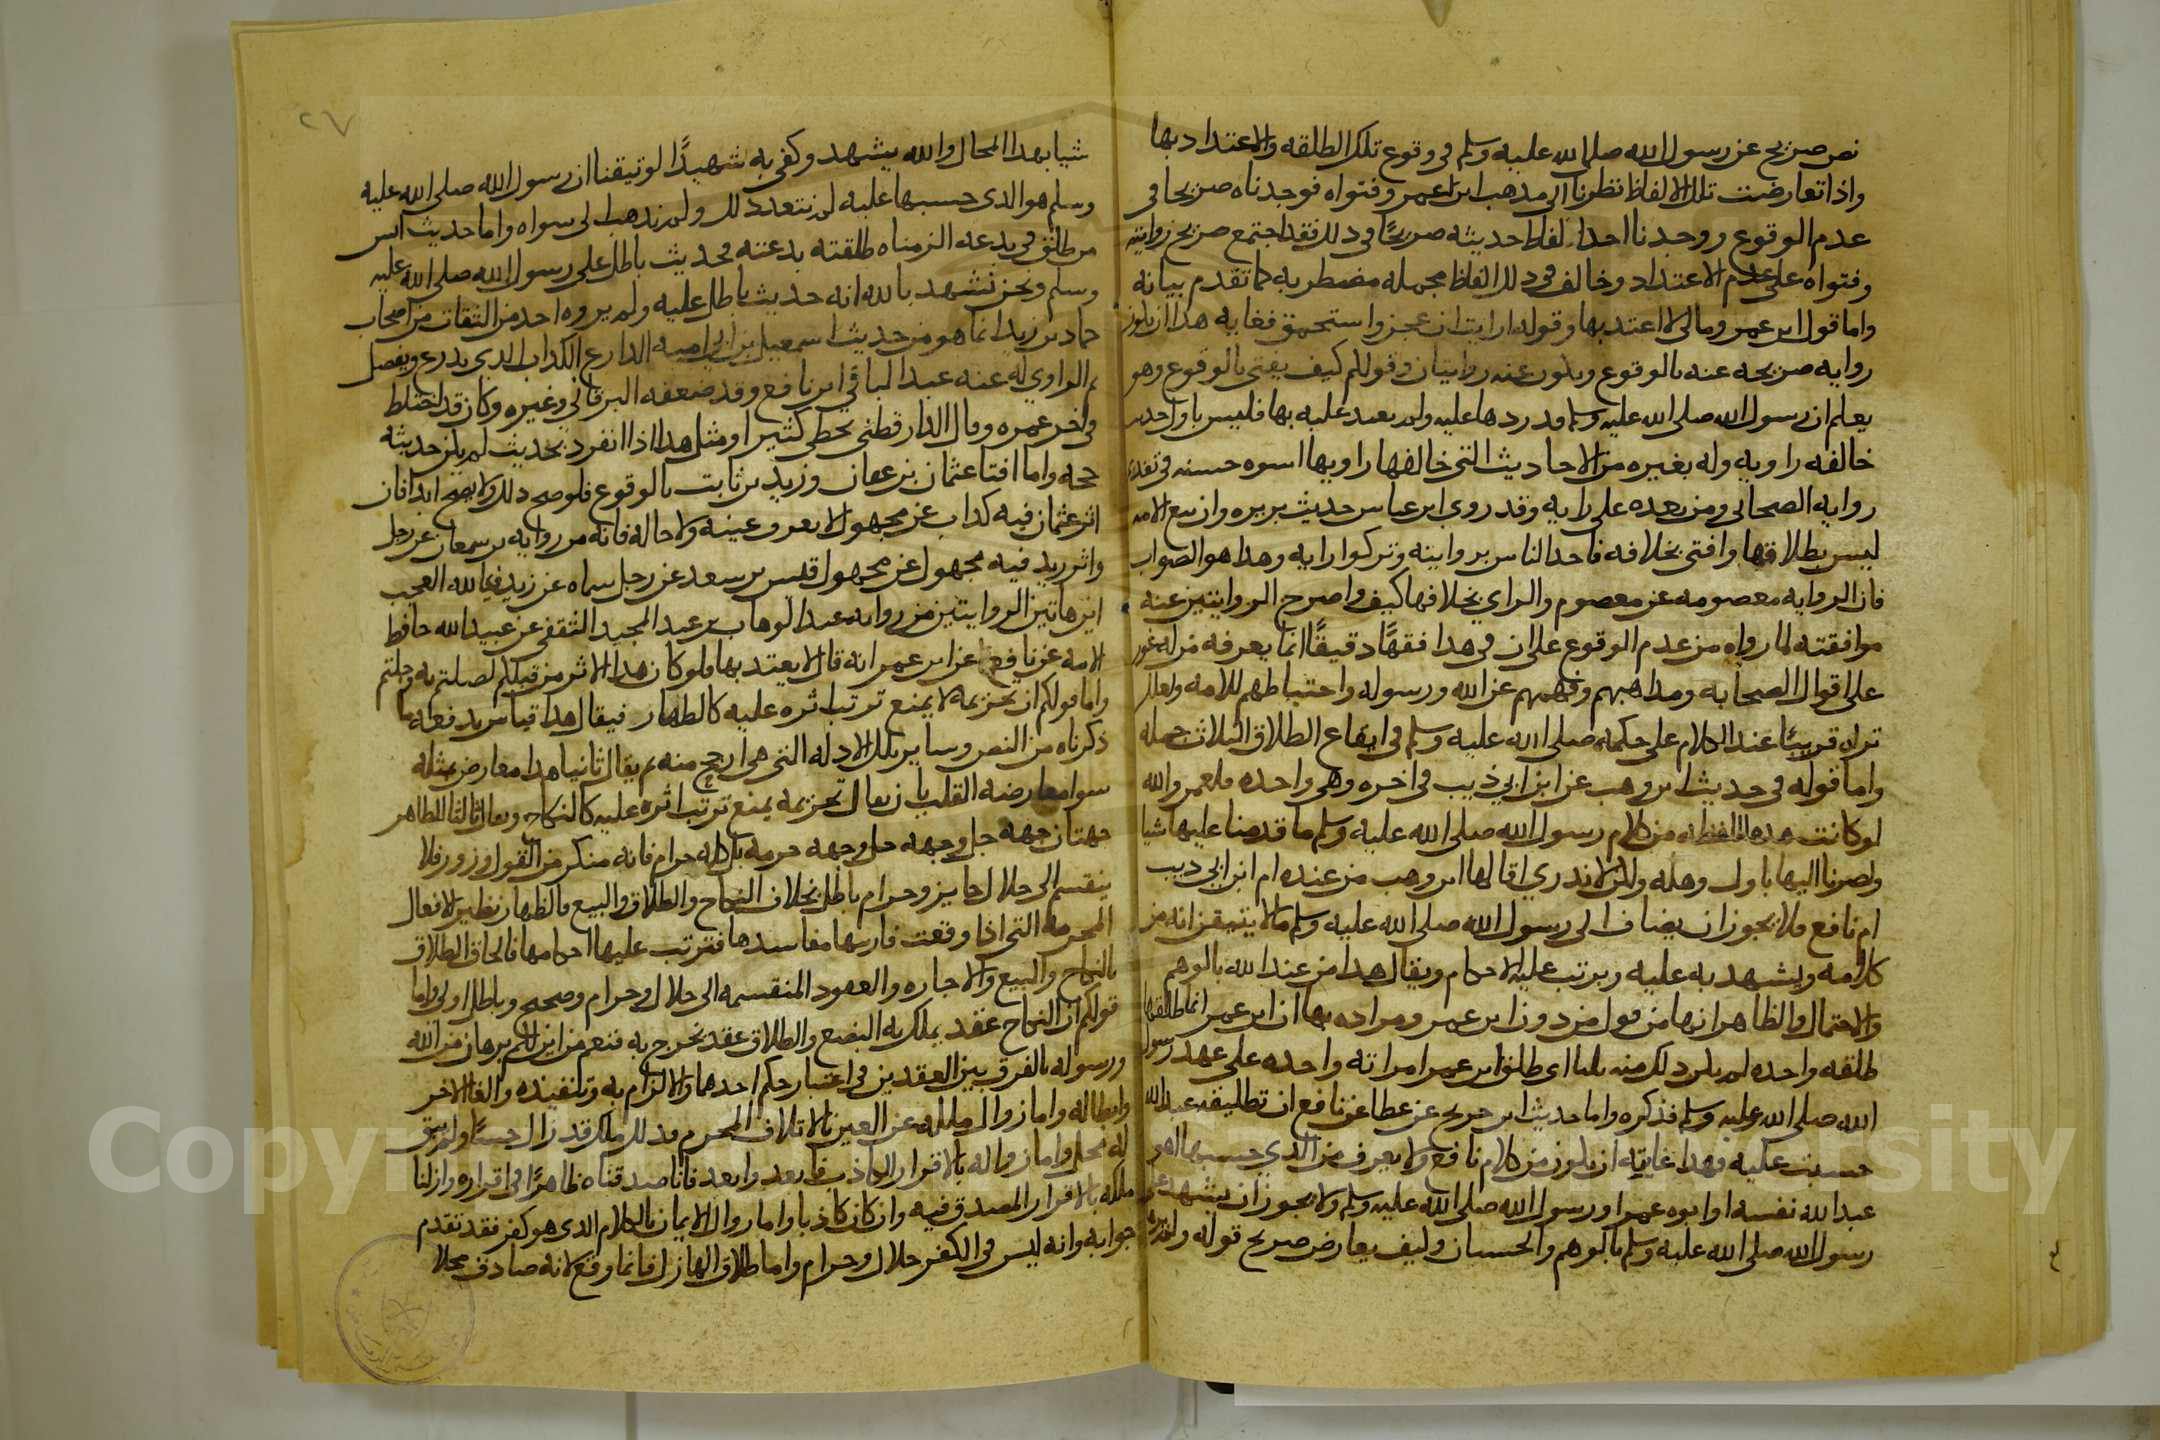 نص صريح عن رسول الله صلى الله عليه وسلم في وقوع تلك الطلقه والاعتداد بها
واذا تعارضت تلك الالفاظ نظرنا الى مذهب ابن عمر وفتواه فوجدناه صريحا في
عدم الوقوع ووجدنا احد الفاظ حديثه صريحًا في ذلك فقد اجتمع صريح روايته
وفتواه على عدم الاعتداد وخالف في ذلك الفاظ مجمله مضطربه كما تقدم بيانه
واما قول ابن عمر ومالي لا اعتد بها وقوله ارايت ان عجز واستحمق فغايه هذا ان يكون
روايه صريحه عنه بالوقوع ويكون عنه روايتان وقولكم كيف يفتي بالوقوع وهو
يعلم ان رسول الله صلى الله عليه وسلم قد ردها عليه ولم يعتد عليه بها فليس باول حديث
خالفه راويه وله بغيره من الاحاديث التي خالفها راويها اسوه حسنه في تقديم
روايه الصحابي ومن بعده على رايه وقد روى ابن عباس حديث بريره وان بيع الامه
ليس بطلاقها وافتى بخلافه فاخذ الناس بروايته وتركوا رايه وهذا هو الصواب
فان الروايه معصومه عن معصوم والراي بخلافها كيف واصرح الروايتين عنه
موافقته لما رواه من عدم الوقوع على ان في هذا فقهًا دقيقًا انما يعرفه من له غور
على اقوال الصحابه ومذاهبهم وفهمهم عن الله ورسوله واحتياطهم للامه ولعلك
تراه قريبًا عند الكلام على حكمه صلى الله عليه وسلم في ايقاع الطلاق الثلاث جمله
واما قوله في حديث ابن وهب عن ابن ابي ذيب في اخره وهي واحده فلعمر والله
لو كانت هذه اللفظه من كلام رسول الله صلى الله عليه وسلم ما قدمنا عليها شيا
ولصرنا اليها باول وهله ولكن لا ندري اقالها ابن وهب من عنده ام ابن ابي ذيب
ام نافع فلا يجوز ان يضاف الى رسول الله صلى الله عليه وسلم مالا يتيقن انه من
كلامه ويشهد به عليه ويرتب عليه الاحكام ويقال هذا من عند الله بالوهم
والاحتمال والظاهر انها من قول من دون ابن عمر ومراده بها ان ابن عمر انما طلقها
طلقه واحده لم يكن ذلك منه ثلثا اي طلق ابن عمر امراته واحده على عهد رسول
الله صلى الله عليه وسلم فذكره واما حديث ابن جريج عن عطا عن نافع ان تطليقه عبد الله
حسبت عليه فهذا غايته ان يكون من كلام نافع ولا يعرف من الذي حسبها اهو
عبد الله نفسه او ابوه عمر او رسول الله صلى الله عليه وسلم ولا يجوز ان يشهد على
رسول الله صلى الله عليه وسلم بالوهم والحسبان وكيف يعارض صريح قوله ولم يرها
٢٧
شيا بهذا المحال والله يشهد وكفى به شهيدًا لو تيقنا ان رسول الله صلى الله عليه
وسلم هو الذي حسبها عليه لم نتعد ذلك ولم نذهب الى سواه واما حديث انس
من طلق في بدعه الزمناه طلقته بدعته فحديث باطل على رسول الله صلى الله عليه
وسلم ونحن نشهد بالله انه حديث باطل عليه ولم يروه احد من الثقات من اصحاب
حماد بن زيد انما هو من حديث اسمعيل بن ابي اميه الدارع الكذاب الذي يذرع ويفصل
ثم الراوي له عنه عبد الباقي ابن نافع وقد ضعفه البرقاني وغيره وكان قد اختلط
في اخر عمره وقال الدارقطني يخطي كثيرا ومثل هذا اذا انفرد بحديث لم يكن حديثه
حجه واما افتا عثمان بن عفان وزيد بن ثابت بالوقوع فلو صح ذلك ولا يصح ابدا فان
اثر عثمان فيه كذاب عن مجهول لا يعرف عينه ولا حاله فانه من روايه بن سمعان عن رجل
واثر زيد فيه مجهول عن مجهول قيس بن سعد عن رجل سماه عن زيد فيا لله العجب
اين هاتين الروايتين من روايه عبد الوهاب بن عبد المجيد الثقفي عن عبيد الله حافظ
الامه عن نافع عن ابن عمر انه قال لا يعتد بها فلو كان هذا الاثر من قبلكم لصلتم به وجلتم
واما قولكم ان تحريمه لا يمنع ترتب اثره عليه كالظهار فيقال هذا قياس يدفعه ما
ذكرناه من النص وساير تلك الادله التي هي ارجح منه ثم يقال ثانيا هذا معارض بمثله
سوا معارضه القلب بان يقال تحريمه يمنع ترتب اثره عليه كالنكاح ويقال ثالثا للظاهر
جهتان جهه حل وجهه حرمه بل كله حرام فانه منكر من القول وزور فلا
ينقسم الى حلال جايز وحرام باطل بخلاف النكاح والطلاق والبيع فالظهار نظير الافعال
المحرمه التي اذا وقعت قارنها مفاسدها فترتب عليها احكامها فالحاق الطلاق
بالنكاح والبيع والاجاره والعقود المنقسمه الى حلال وحرام وصحيح وباطل اولى واما
قولكم ان النكاح عقد يملك به البضع والطلاق عقد يخرج به فنعم من اين لكم برهان من الله
ورسوله بالفرق بين العقدين في اعتبار حكم احدهما والالزام به وتنفيذه والغا الاخر
وابطاله واما زوال ملكه عن العين بالاتلاف المحرم فذلك ملك قد زال حسًا ولم يبق
له محل واما زواله بالاقرار الكاذب فابعد وابعد فانا صدقناه ظاهرًا في اقراره وازلنا
ملكه بالاقرار المصدق فيه وان كان كاذبا واما زوال الايمان بالكلام الذي هو كفر فقد تقدم
جوابه وانه ليس في الكفر حلال وحرام واما طلاق الهازل فانما وقع لانه صادف محلا